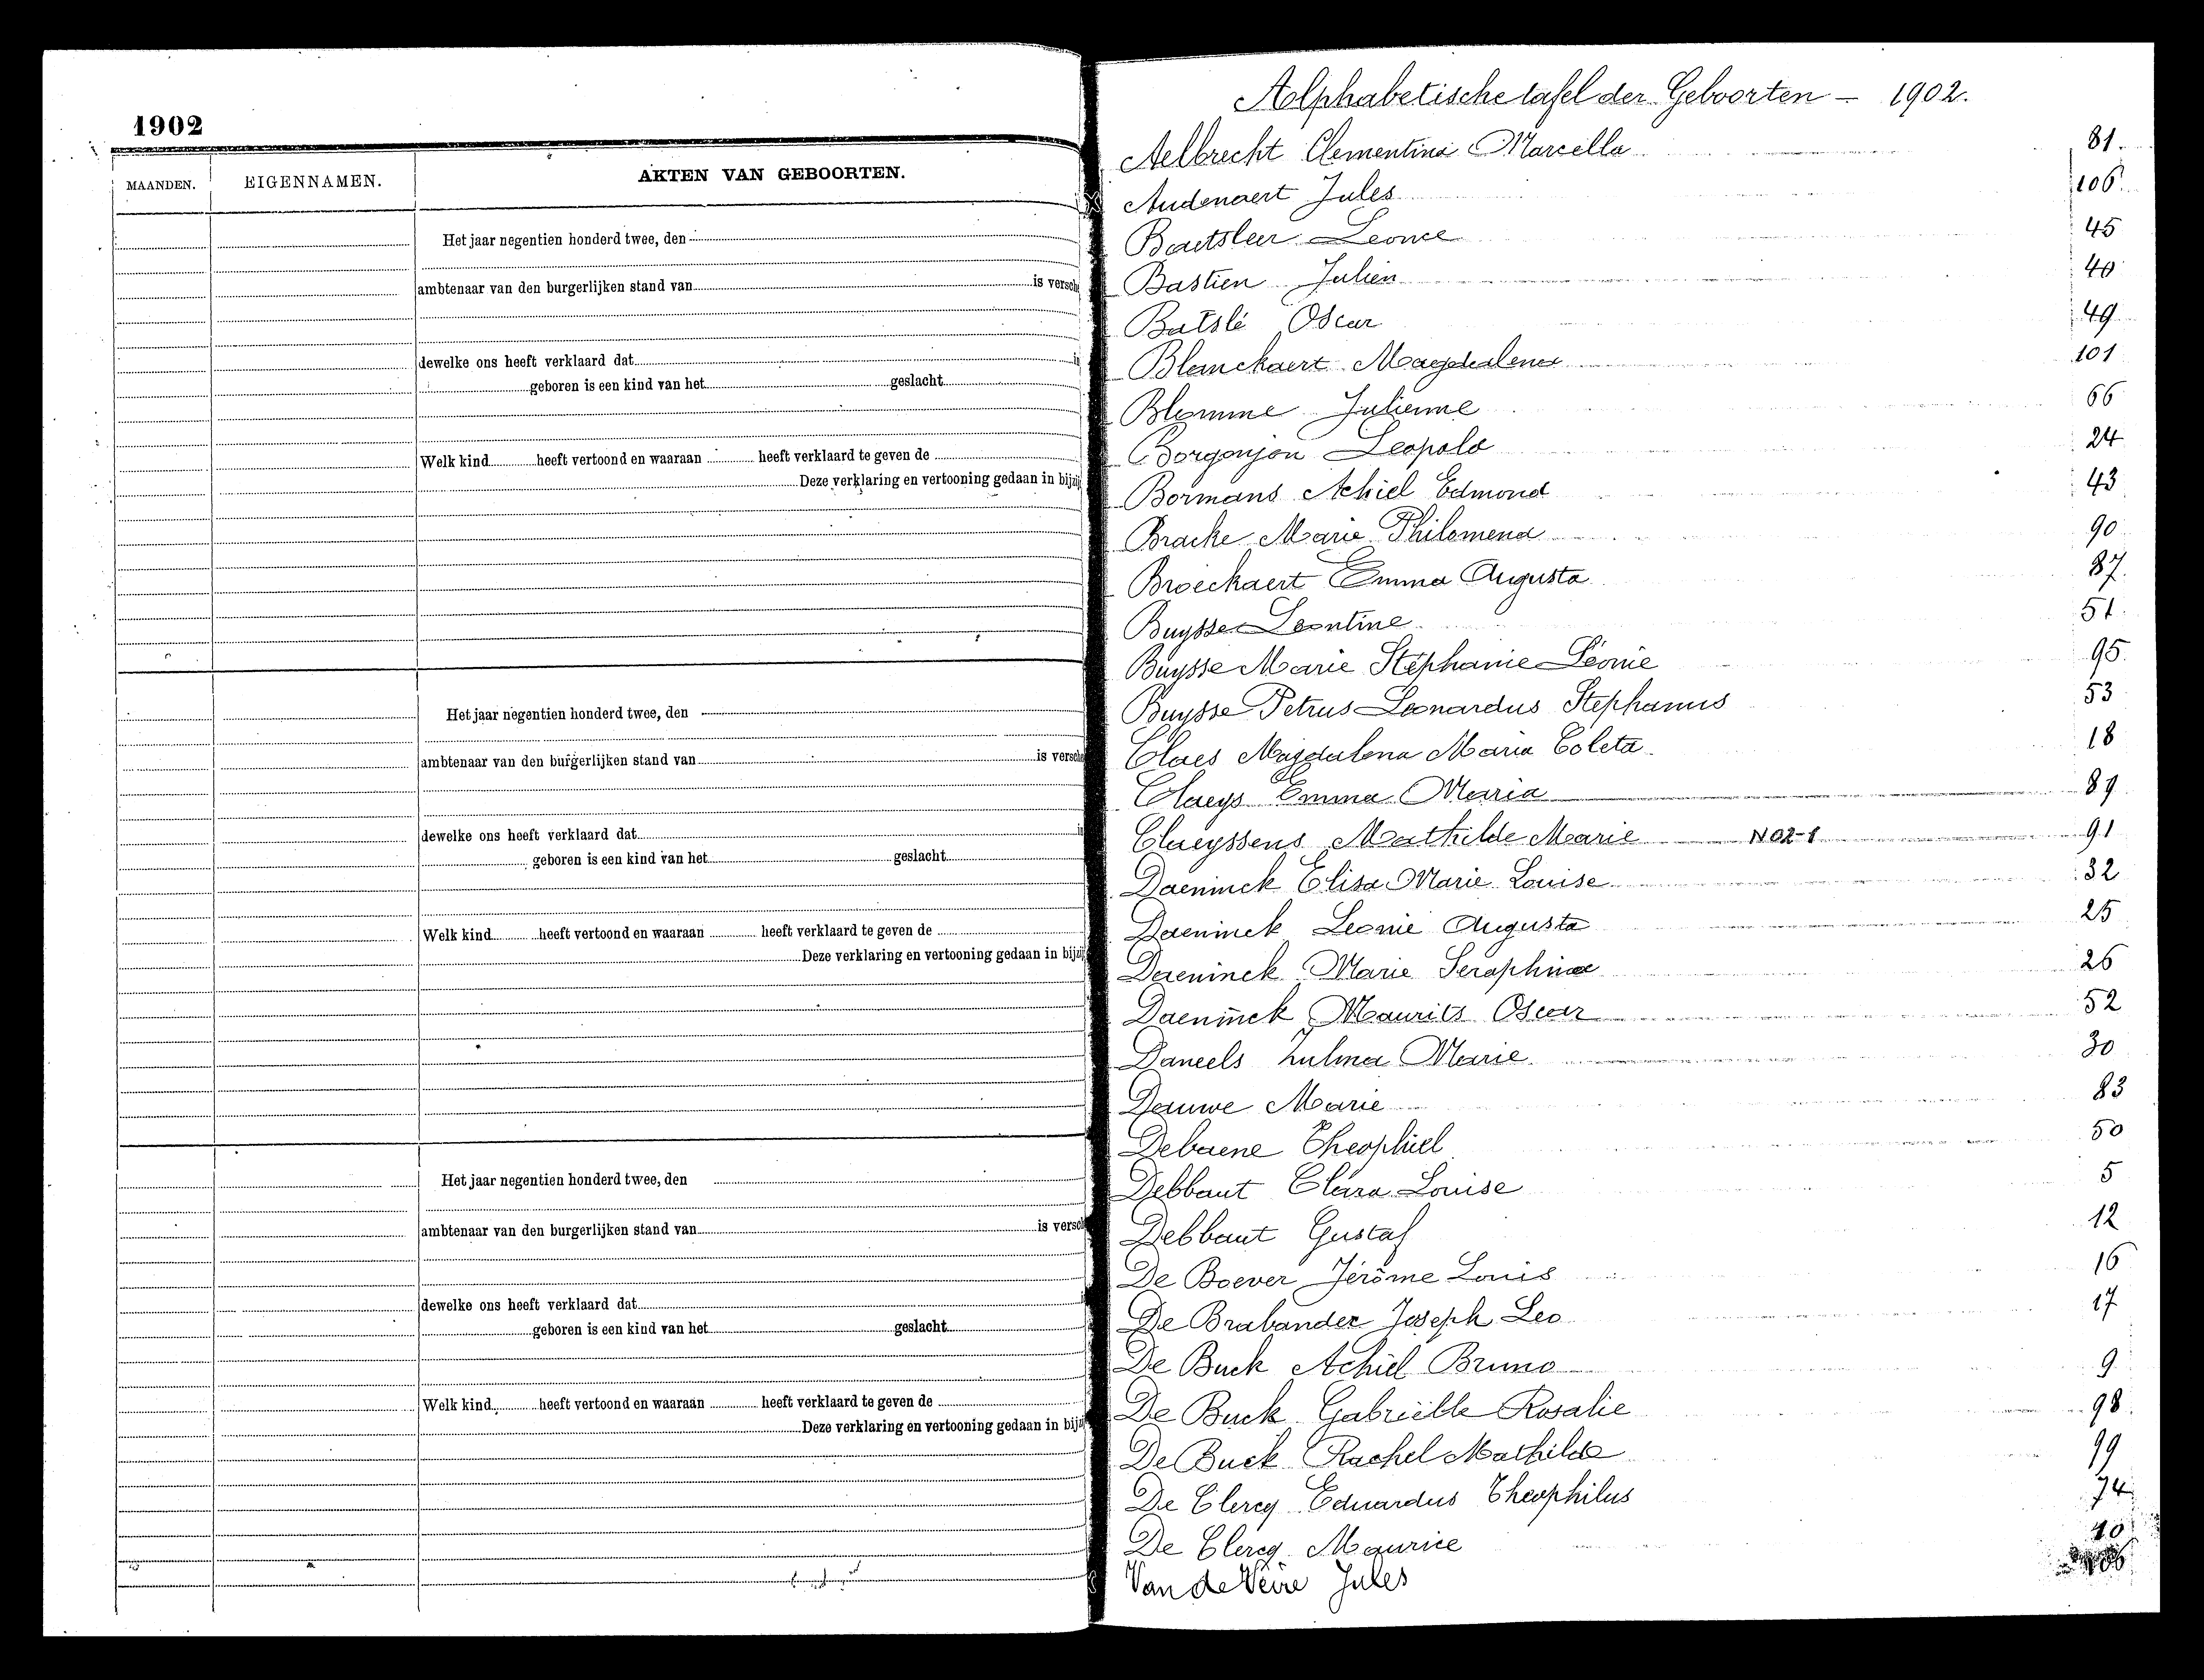 1902
MAANDEN. EIGENNAMEN. AKTEN VAN GEBOORTEN.
Het jaar negentien honderd twee, den
ambtenaar van den burgerlijken stand van is versch
dewelke ons heeft verklaard dat
geboren is een kind van het geslacht
Welk kind heeft vertoond en waaraan heeft verklaard te geven de
Deze verklaring en vertooning gedaan in bijzij
Het jaar negentien honderd twee, den
ambtenaar van den burgerlijken stand van is versche
dewelke ons heeft verklaard dat
geboren is een kind van het geslacht
Welk kind heeft vertoond en waaraan heeft verklaard te geven de
Deze verklaring en vertooning gedaan in bijzij
Het jaar negentien honderd twee, den
ambtenaar van den burgerlijken stand van is versch
dewelke ons heeft verklaard dat
geboren is een kind van het geslacht
Welk kind heeft vertoond en waaraan heeft verklaard te geven de
Deze verklaring en vertooning gedaan in bijz
Alphabetische tafel der Geboorten – 1902.
Aelbrecht Clementina Marcella 81.
Audenaert Jules 106.
Baetsleer Leonce 45
Bastien Julien 40
Batslé Oscar 49
Blanckaert Magdalena 101
Blomme Julienne 66
Borgonjon Leopold 24
Bormans Achiel Edmond 43
Bracke Marie Philomena 90
Broeckaert Emma Augusta 87.
Buysse Leontine 51.
Buysse Marie Stéphanie Léonie 95.
Buysse Petrus Leonardus Stephanus 53
Claes Magdalena Maria Coleta 18
Claeys Emma Maria 89
Claeyssens Mathilde Marie N02-1 91
Daeninck Elisa Marie Louise 32
Daeninck Leonie Augusta 25
Daeninck Marie Seraphina 26
Daeninck Maurits Oscar 52
Daneels Zulma Marie 30
Dauwe Marie 83
Debaene Theophiel 50
Debbaut Clara Louise 5
Debbaut Gustaf 12
De Boever Jérôme Louis 16
De Brabander Joseph Leo 17
De Buck Achiel Bruno 9
De Buck Gabriëlle Rosalie 98.
De Buck Rachel Mathilde 99
De Clercq Eduardus Theophilus 74
De Clercq Maurice 10
Van de Veire Jules